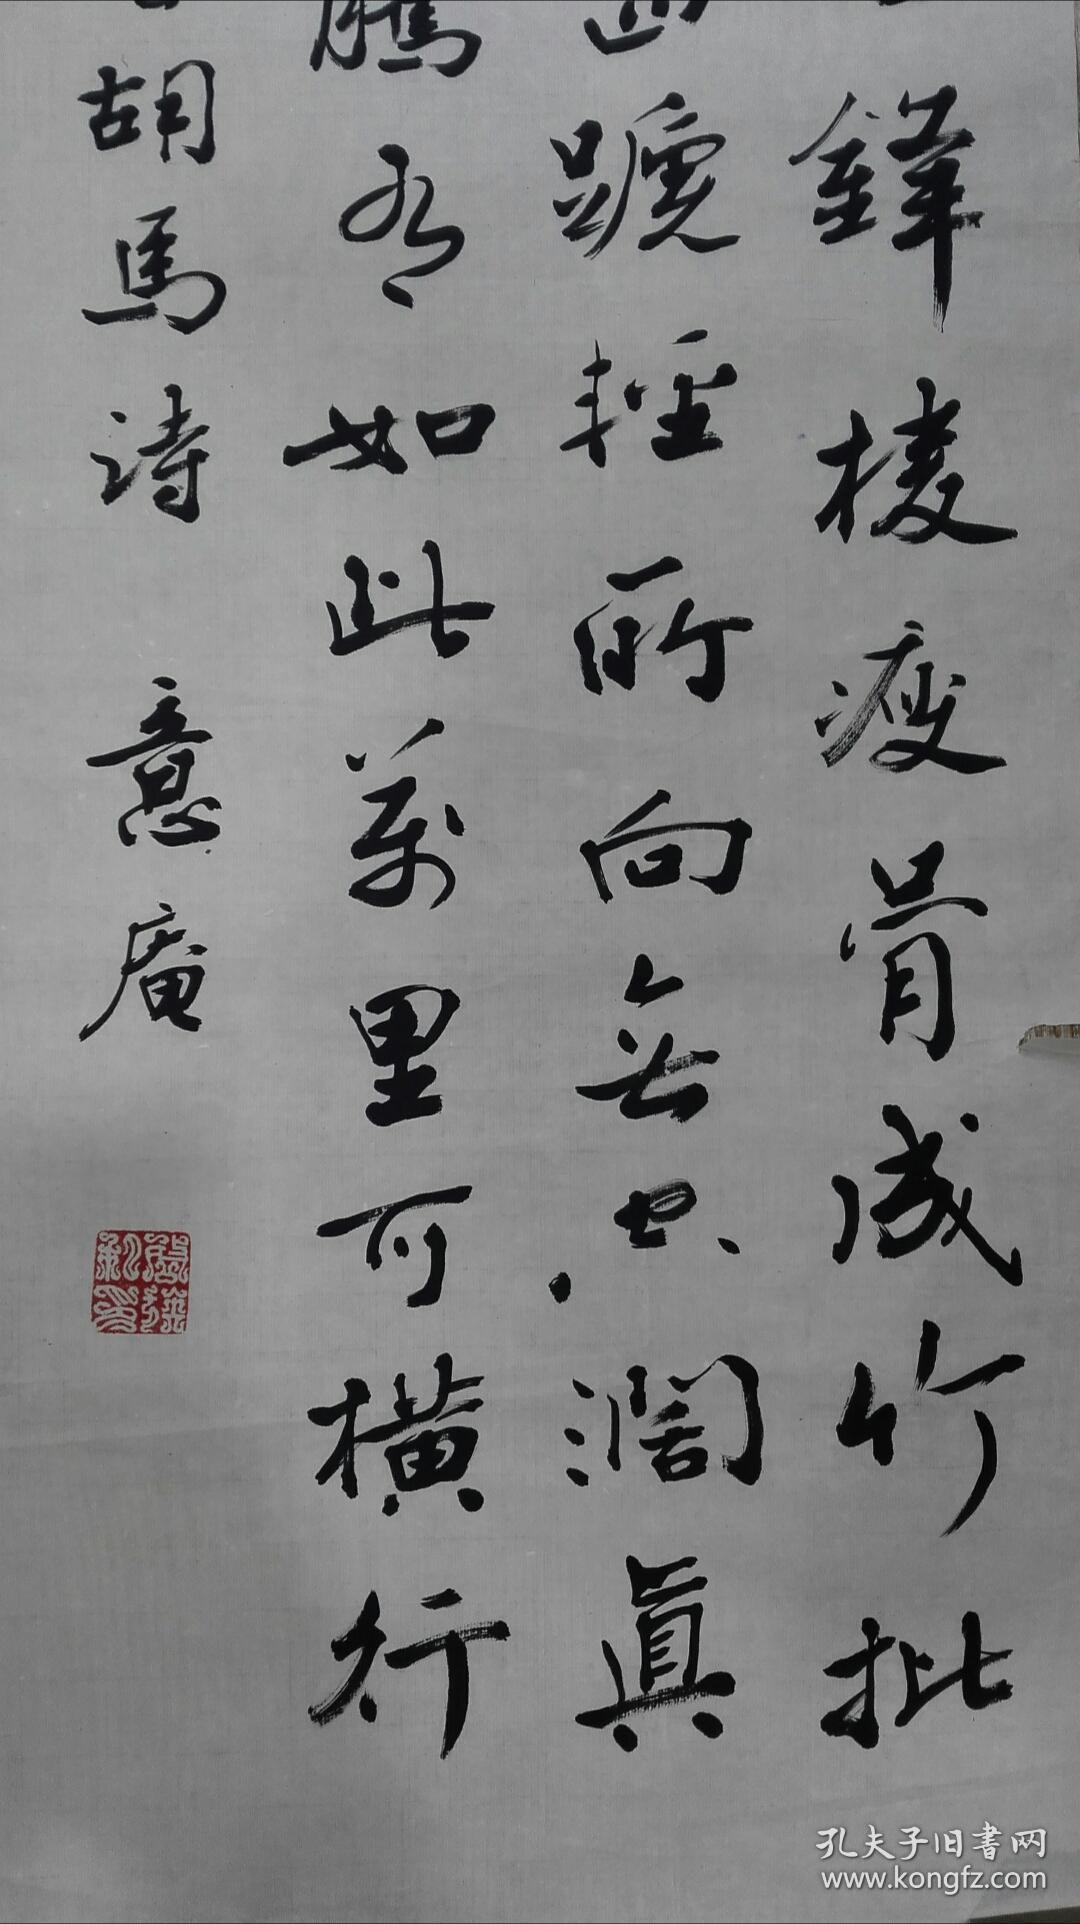 鋒棱瘦骨成竹批
蹏輕所向無空濶眞
騰有如此萬里可橫行
胡馬詩 意庵
孔夫子旧书网
www.kongfz.com